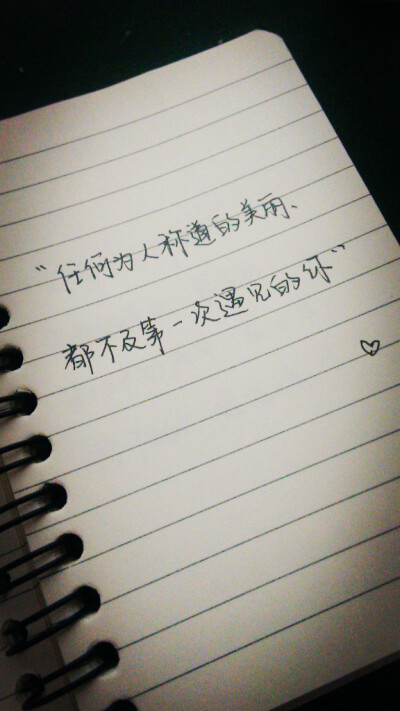 “任何为人称道的美丽、
都不及第一次遇见的你”